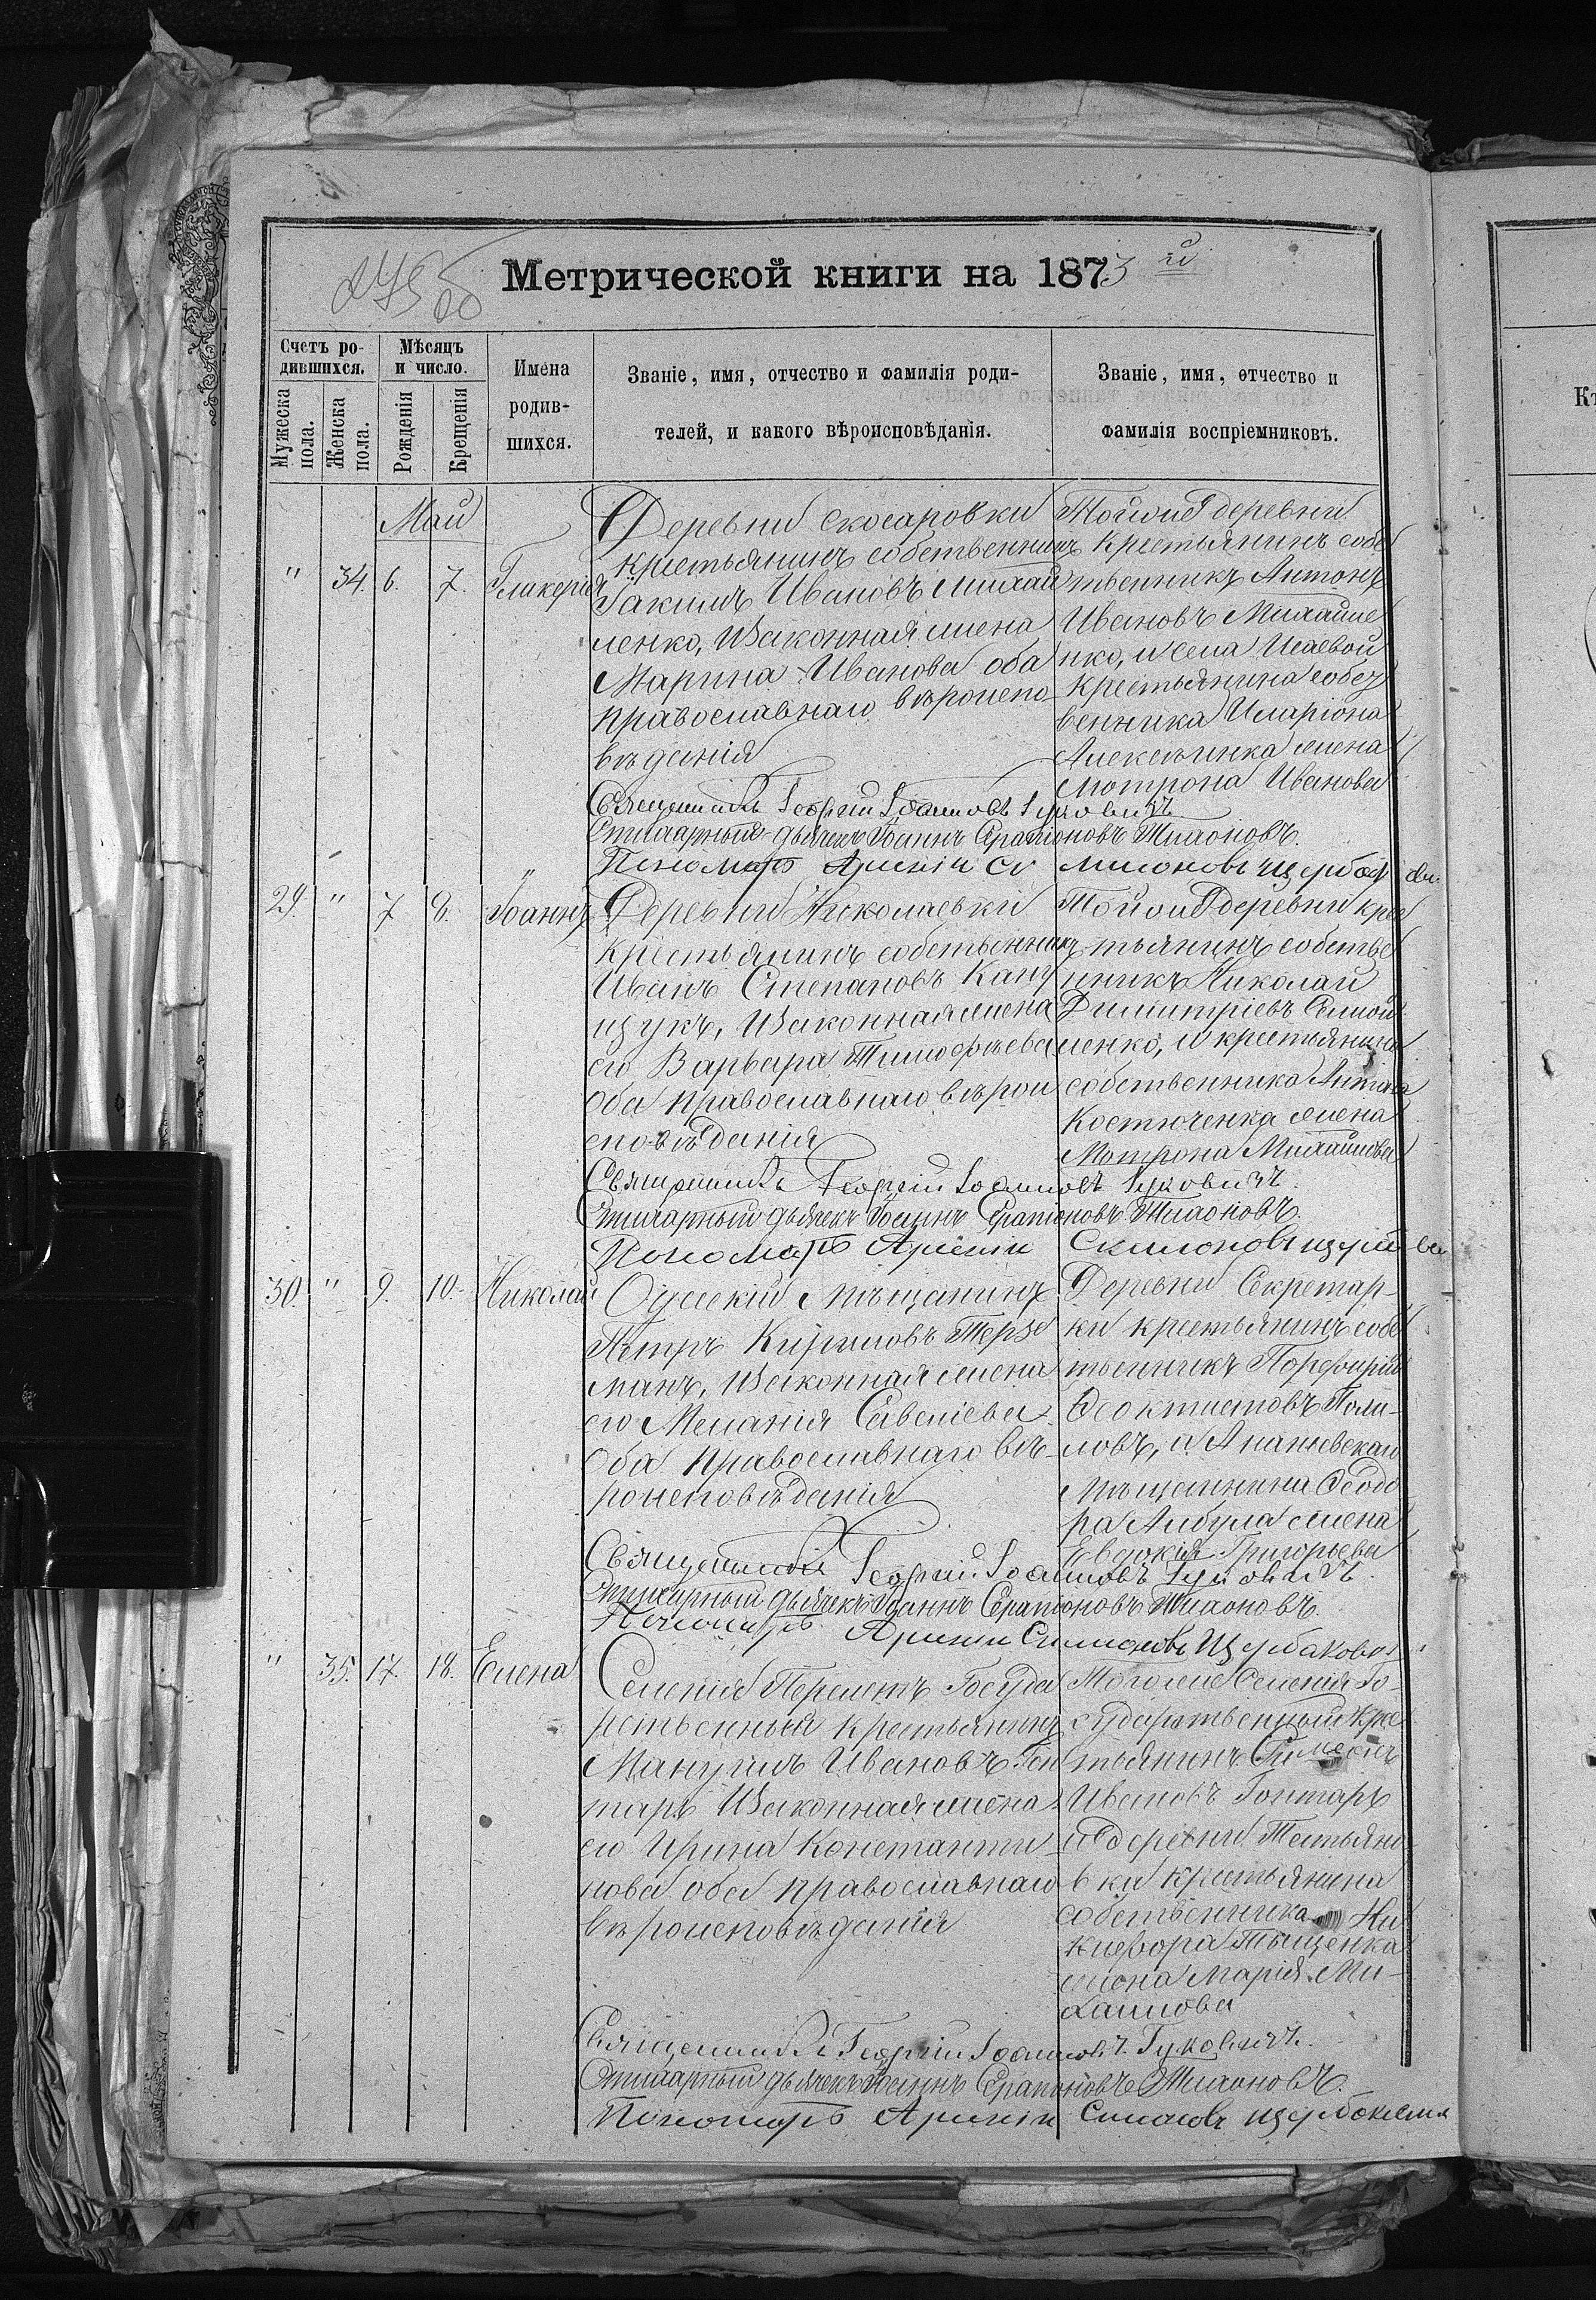 Метрической книги на 1873 й
Счетъ родившихся.
Мужеска пола.
Женска пола.
Мѣсяцъ и число.
Рожденія
Крещенія
Имена родившихся.
Званіе, имя, отчество и фамилія родителей, и какого вѣроисповѣданія.
Званіе, имя, отчество и фамилія воспріемниковъ.
Май
" 34. 6. 7. Гликерія
Деревни Скосаровки
крестьянинъ собственникъ
Іакимъ Ивановъ Михай
ленко, И законная жена
Марина Иванова оба
православнаго вѣроиспо-
вѣданія
Тойже деревни
крестьянинъ собс
твенникъ Антонъ
Ивановъ Михайле
нко, и села Исаевой
крестьянина собст
венника Иларіона
жена
Мотрона Иванова
Священникъ Георгій Іоанновъ
дьячекъ Іоаннъ Серапіоновъ
Пономарь
29. " 7 8. Іоаннъ
Деревни Николаевки
крестьянинъ собственникъ
Иванъ Степановъ Кану
щукъ, И законная жена
его Варвара Тимофѣева
Оба православнаго вѣрои
сповѣданія
Тойже деревни крес
тьянинъ собстве
нникъ Николай
Димитріевъ Самой
ленко, и крестьянина
собственника Антона
Костюченка жена
Мотрона Михайлова
Священникъ Георгій Іоанновъ
дьячекъ Іоаннъ Серапіоновъ
Пономарь
30. " 9. 10. Николай
Одесскій мѣщанинъ
Петръ Кириловъ Терзе
манъ, И законная жена
его Меланія Савеліева
Оба православнаго вѣ-
роисповѣданія
Деревни Секретар-
ки крестьянинъ собс
твенникъ Порфирій
Ѳеоктистовъ
и Ананьевскаго
мѣщанина Ѳеодо
ра жена
Евдокія Григорьева
Священникъ Георгій Іоанновъ
дьячекъ Іоаннъ Серапіоновъ
Пономарь
" 35. 17. 18. Елена
Селенія Перелетъ Госуда
рственный крестьянинъ
Мануилъ Ивановъ Гон
таръ И законная жена
его Ирина Константи
нова оба православнаго
вѣроисповѣданія
Тогоже Селенія Го-
сударственный крес
тьянинъ Симеонъ
Ивановъ Гонтаръ
и деревни Татьяно
вки крестьянина
собственника Ни
кифора Тыщенка
жена Марія Ми-
хайлова
Священникъ Георгій Іоанновъ
дьячекъ Іоаннъ Серапіоновъ
Пономарь